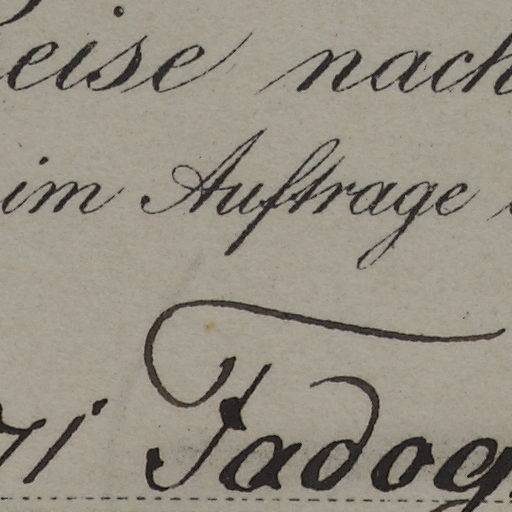 eise nach
im Auftrage
71 Fadog